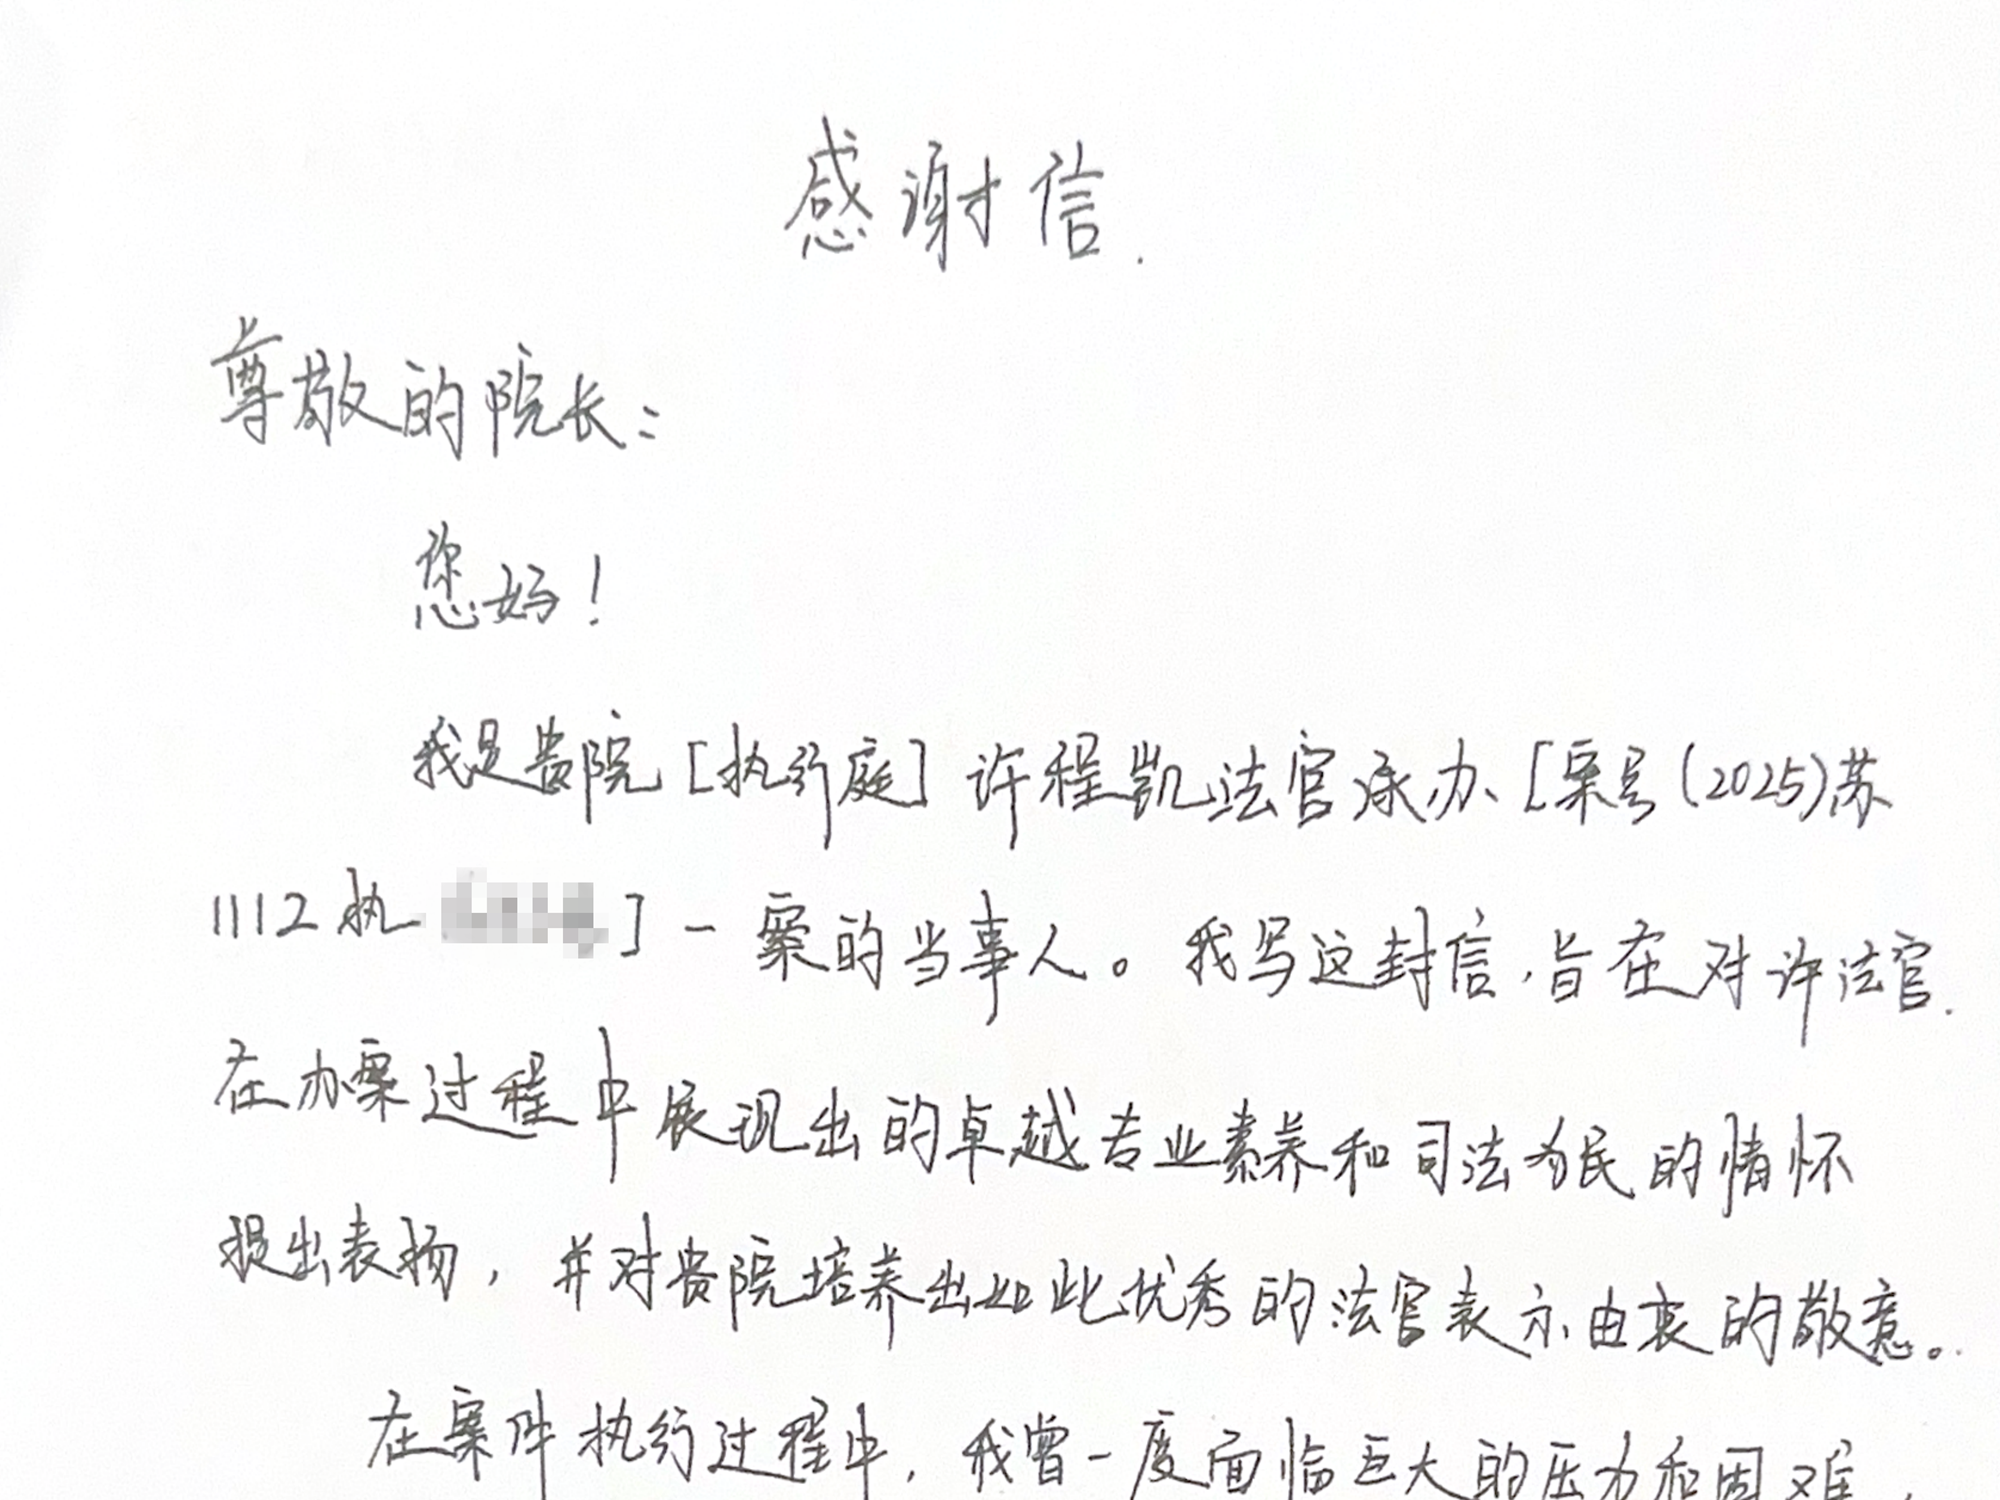 感谢信.
尊敬的院长:
您好!
我是贵院[执行庭]许程凯法官承办[案号(2025)苏
1112执]一案的当事人。我写这封信,旨在对许法官.
在办案过程中展现出的卓越专业素养和司法为民的情怀
提出表扬,并对贵院培养出如此优秀的法官表示由衷的敬意。
在案件执行过程中,我曾一度面临巨大的压力和困难,